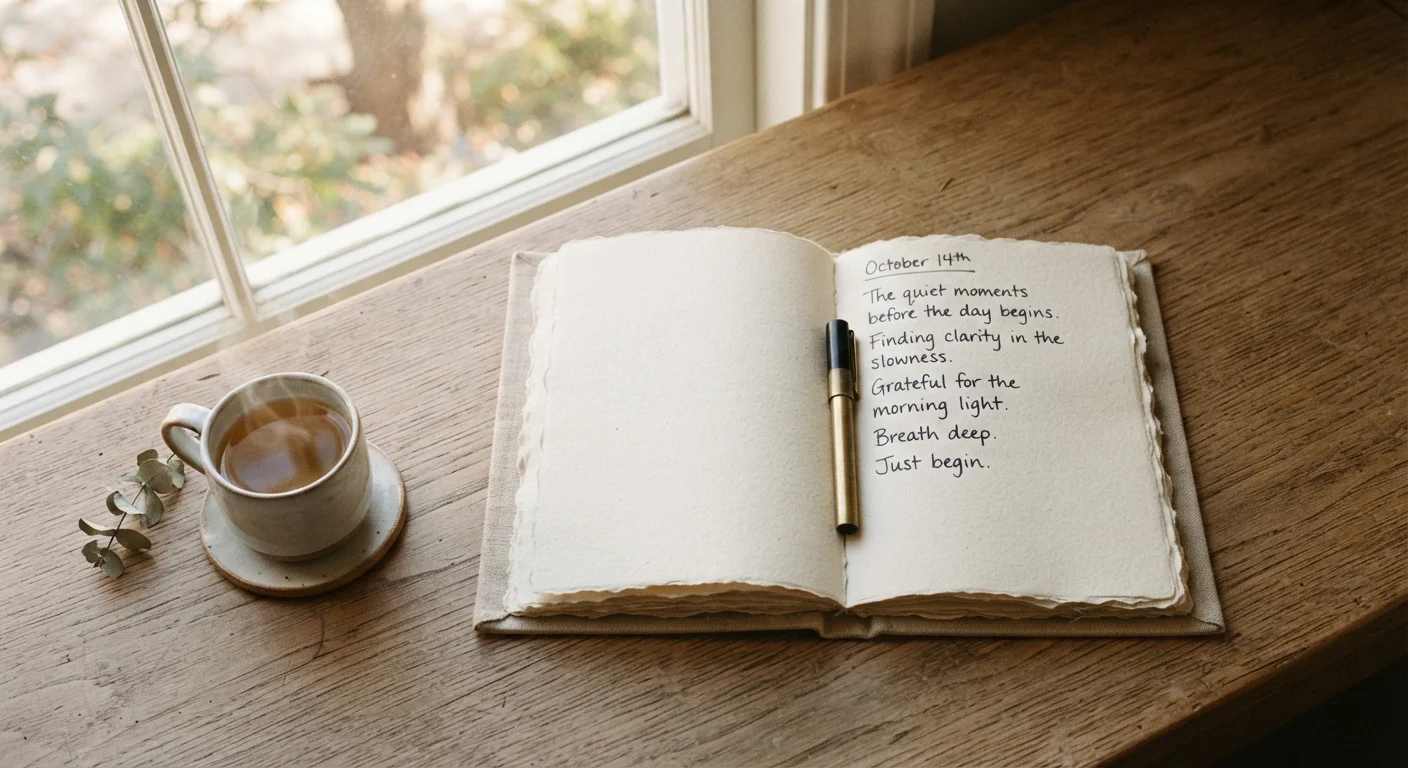 October 14th
The quiet moments
before the day begins.
Finding clarity in the
slowness.
Grateful for the
morning light.
Breath deep.
Just begin.